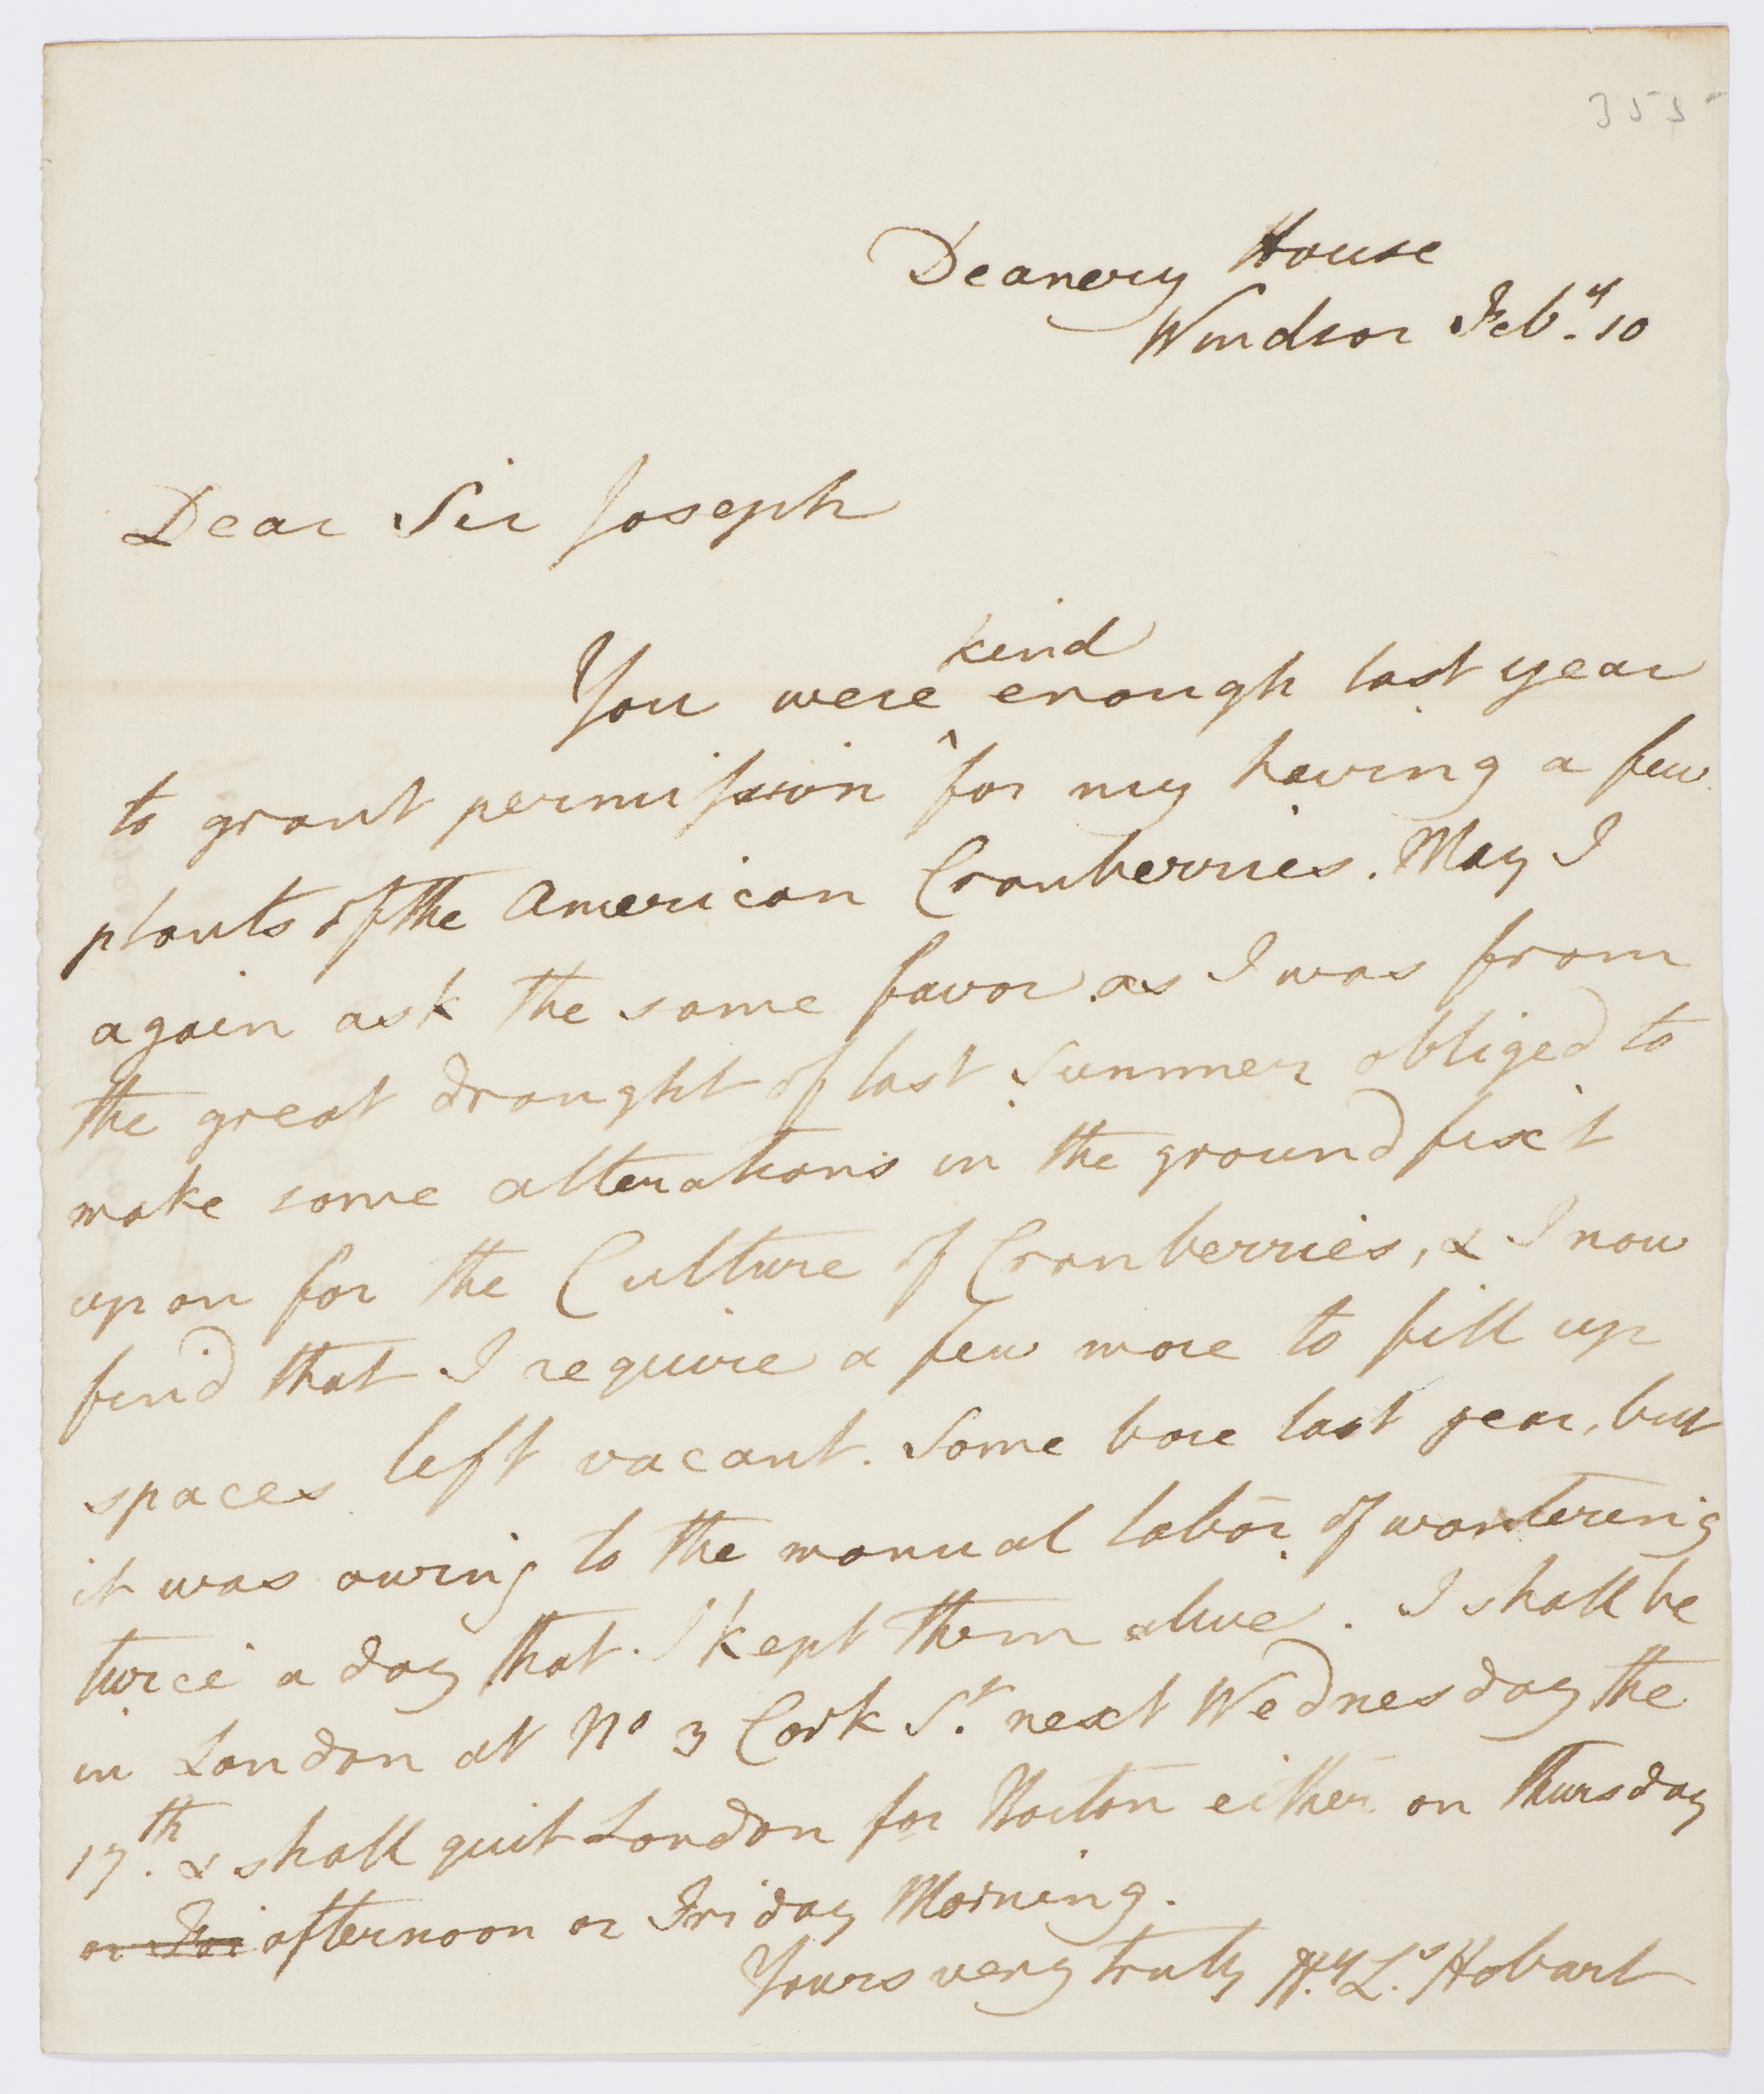 355
Deanery House
Windsor Feby. 10
Dear Sir Joseph
kind
You were ^ enough last year
to grant permission for my having a few
plants of the American Cranberries. May I
again ask the same favor as I was from
the great draught of last Summer obliged to
make some alterations in the ground fixt
upon for the Culture of Cranberries, & I now
find that I require a few more to fill up
spaces left vacant. Some bore last year, but
it was owing to the manual labor of wartering
twice a day that I kept them alive. I shall be
in London at No 3 Cork St. next Wednesday the
17th. & shall quit London for Nocton either on Thursday
or Fri afternoon or Friday Morning.
Yours very truly Hy. Ls. Hobart